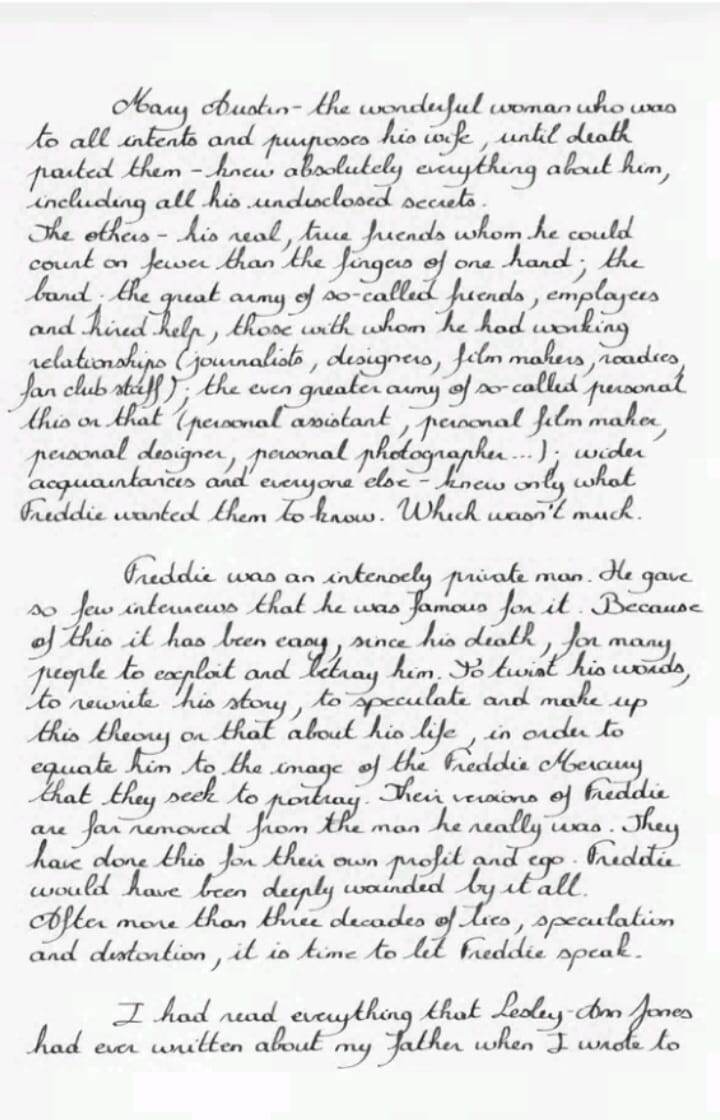 Mary Austin - the wonderful woman who was
to all intents and purposes his wife, until death
parted them - knew absolutely everything about him,
including all his undisclosed secrets.
The others - his real, true friends whom he could
count on fewer than the fingers of one hand; the
band; the great army of so-called friends, employees
and hired help, those with whom he had working
relationships (journalists, designers, film makers, roadies,
fan club staff); the even greater army of so-called personal
this or that (personal assistant, personal film maker,
personal designer, personal photographer...); wider
acquaintances and everyone else - knew only what
Freddie wanted them to know. Which wasn't much.
Freddie was an intensely private man. He gave
so few interviews that he was famous for it. Because
of this it has been easy, since his death, for many
people to exploit and betray him. To twist his words,
to rewrite his story, to speculate and make up
this theory or that about his life, in order to
equate him to the image of the Freddie Mercury
that they seek to portray. Their versions of Freddie
are far removed from the man he really was. They
have done this for their own profit and ego. Freddie
would have been deeply wounded by it all.
After more than three decades of lies, speculation
and distortion, it is time to let Freddie speak.
I had read everything that Lesley-Ann Jones
had ever written about my father when I wrote to